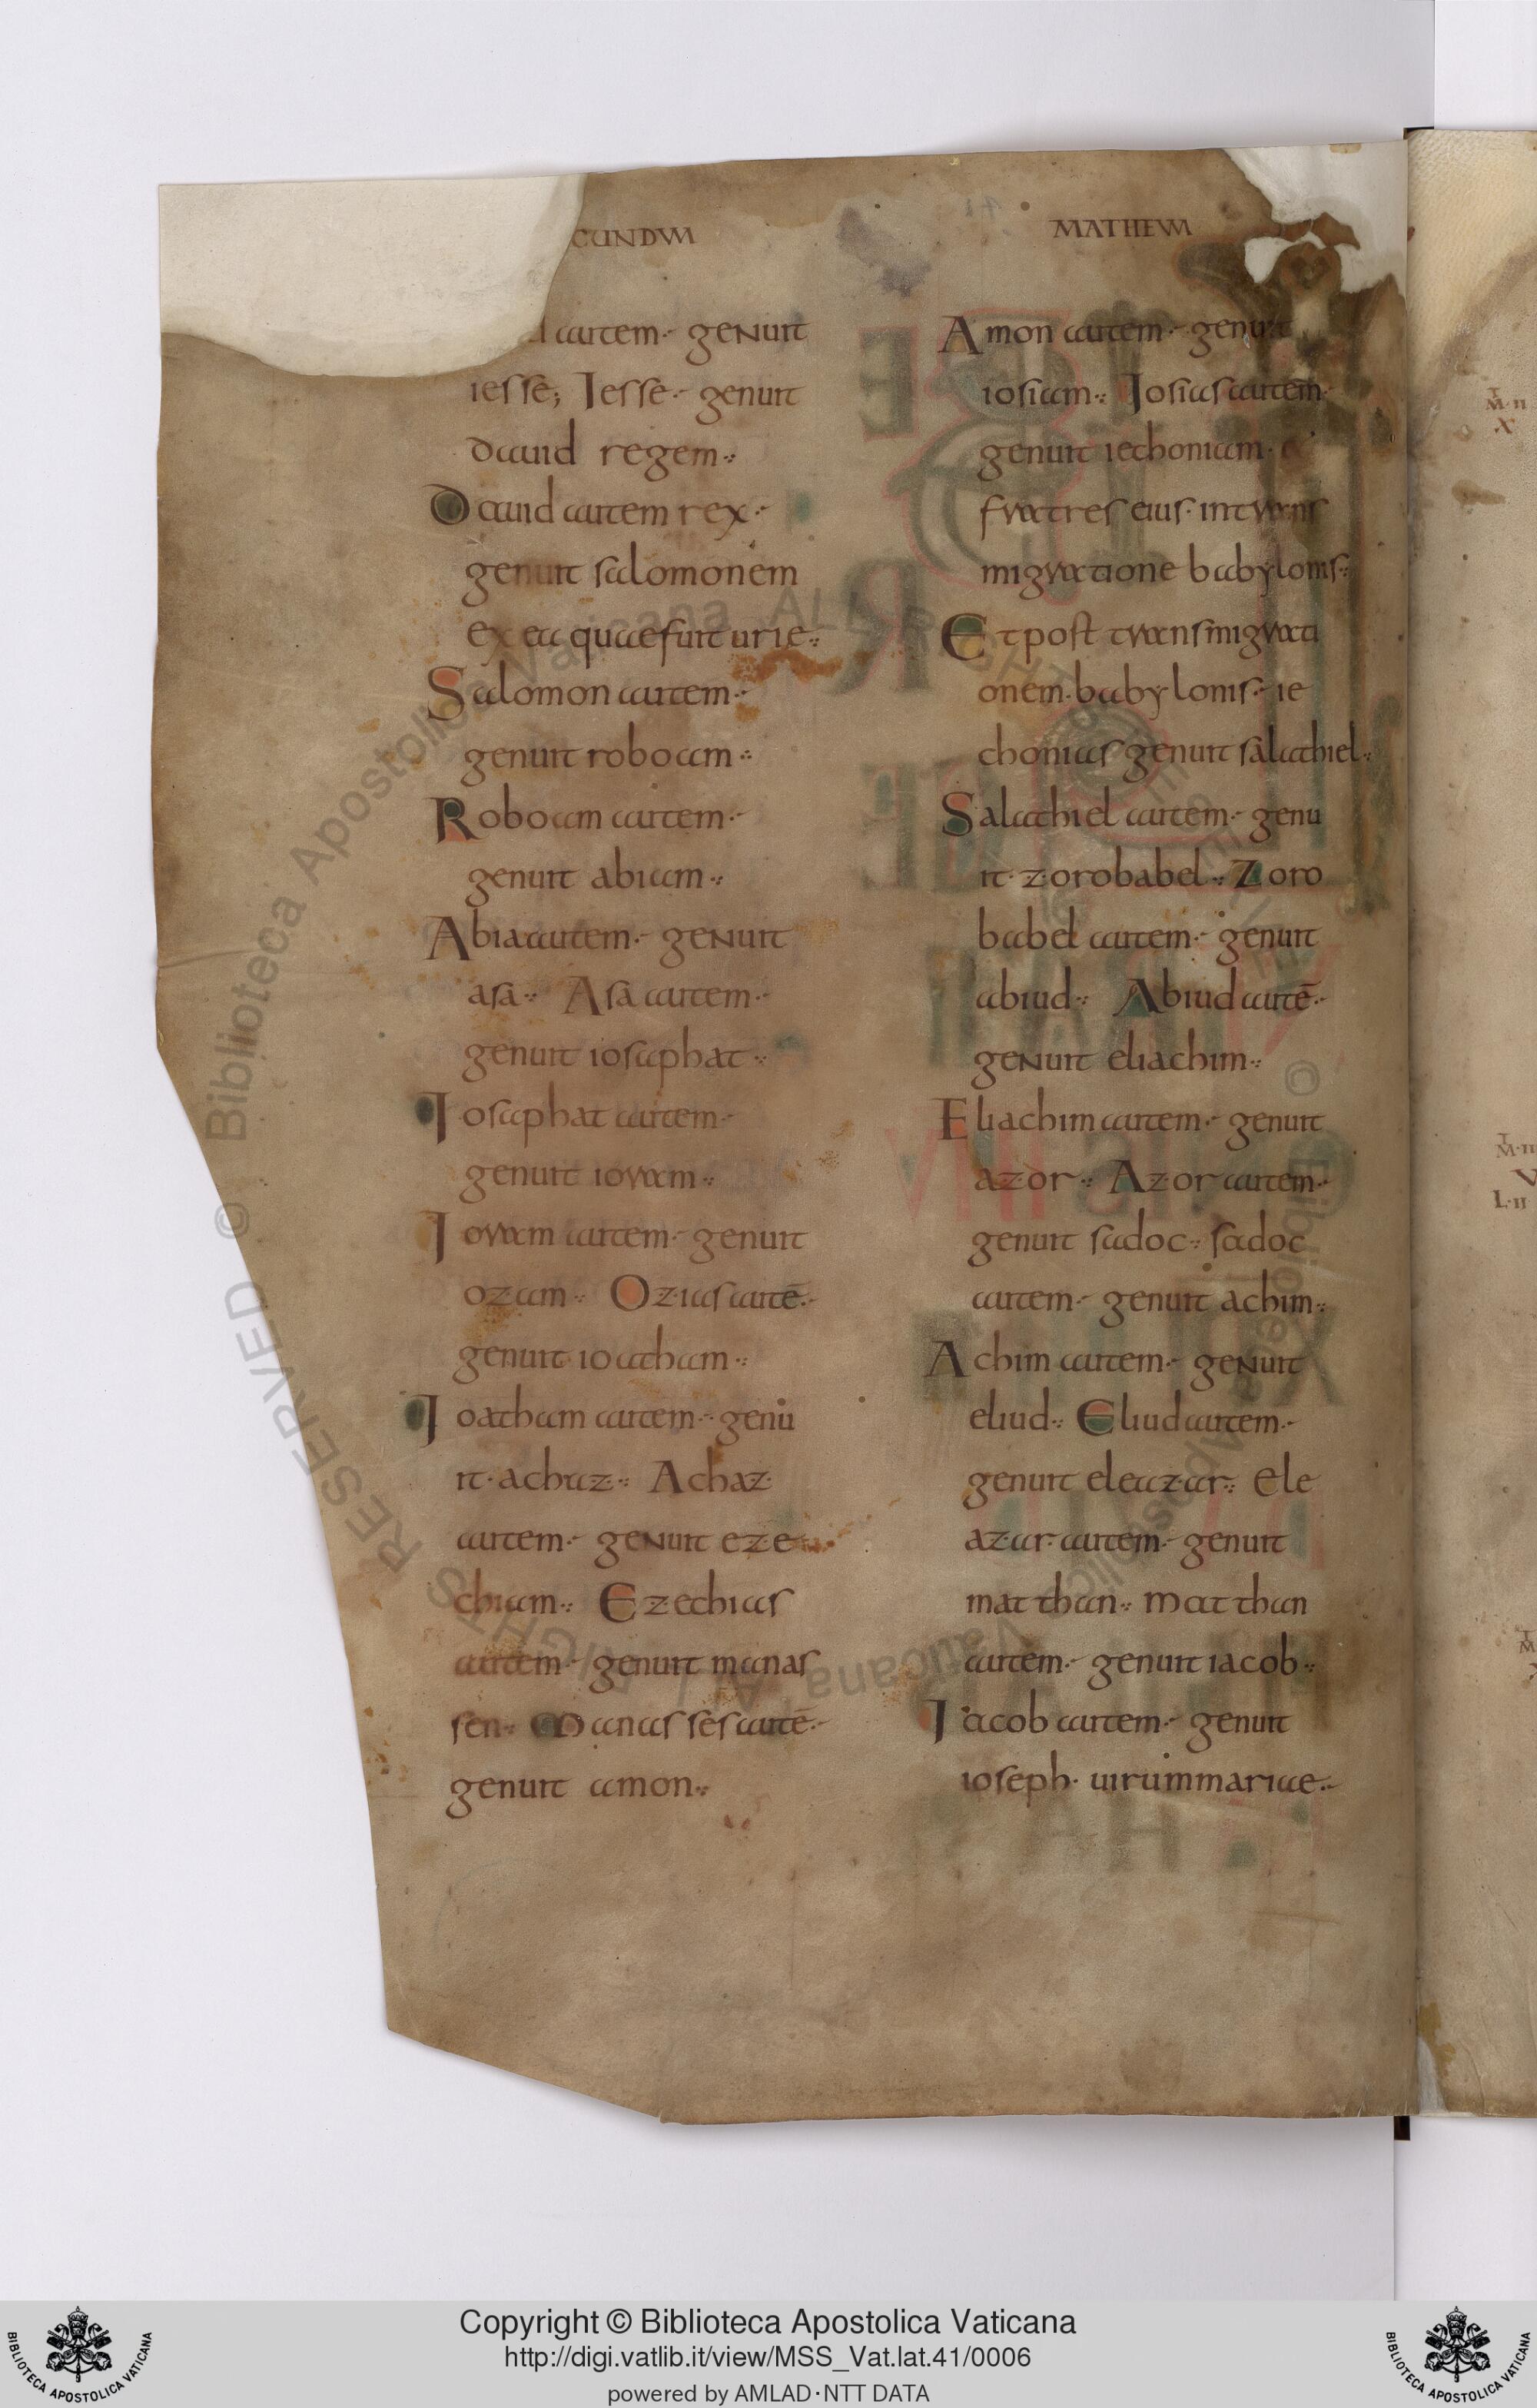 CUNDUM
MATHEUM
autem· genuit
iesse; Iesse· genuit
dauid regem·
Dauid autem rex·
genuit salomonem
ex ea quae fuit urie·
Salomon autem·
genuit roboam·
Roboam autem·
genuit abiam·
Abia autem· genuit
asa· Asa autem·
genuit iosaphat·
Iosaphat autem·
genuit ioram·
Ioram autem· genuit
oziam· Ozias autē·
genuit ioatham·
Ioatham autem· genu
it· achaz· Achaz·
autem· genuit eze
chiam· Ezechias
autem· genuit manas
sen· Manasses autē·
genuit amon·
Amon autem· genuit
iosiam· Iosias autem·
genuit iechoniam·
fratres eius· in trans
migratione babylonis·
Et post transmigrati
onem· babylonis· ie
chonias genuit salathiel·
Salathiel autem· genu
it· zorobabel· Zoro
babel autem· genuit
abiud· Abiud autē·
genuit eliachim·
Eliachim autem· genuit
azor· Azor autem·
genuit sadoc· sadoc
autem· genuit achim·
Achim autem· genuit
eliud· Eliud autem·
genuit eleazar· Ele
azar· autem· genuit
matthan· matthan
autem· genuit iacob·
Iacob autem· genuit
ioseph· uirum mariae·
Copyright © Biblioteca Apostolica Vaticana
http://digi.vatlib.it/view/MSS_Vat.lat.41/0006
powered by AMLAD·NTT DATA
BIBLIOTECA APOSTOLICA VATICANA
BIBLIOTECA APOSTOLICA VATICANA